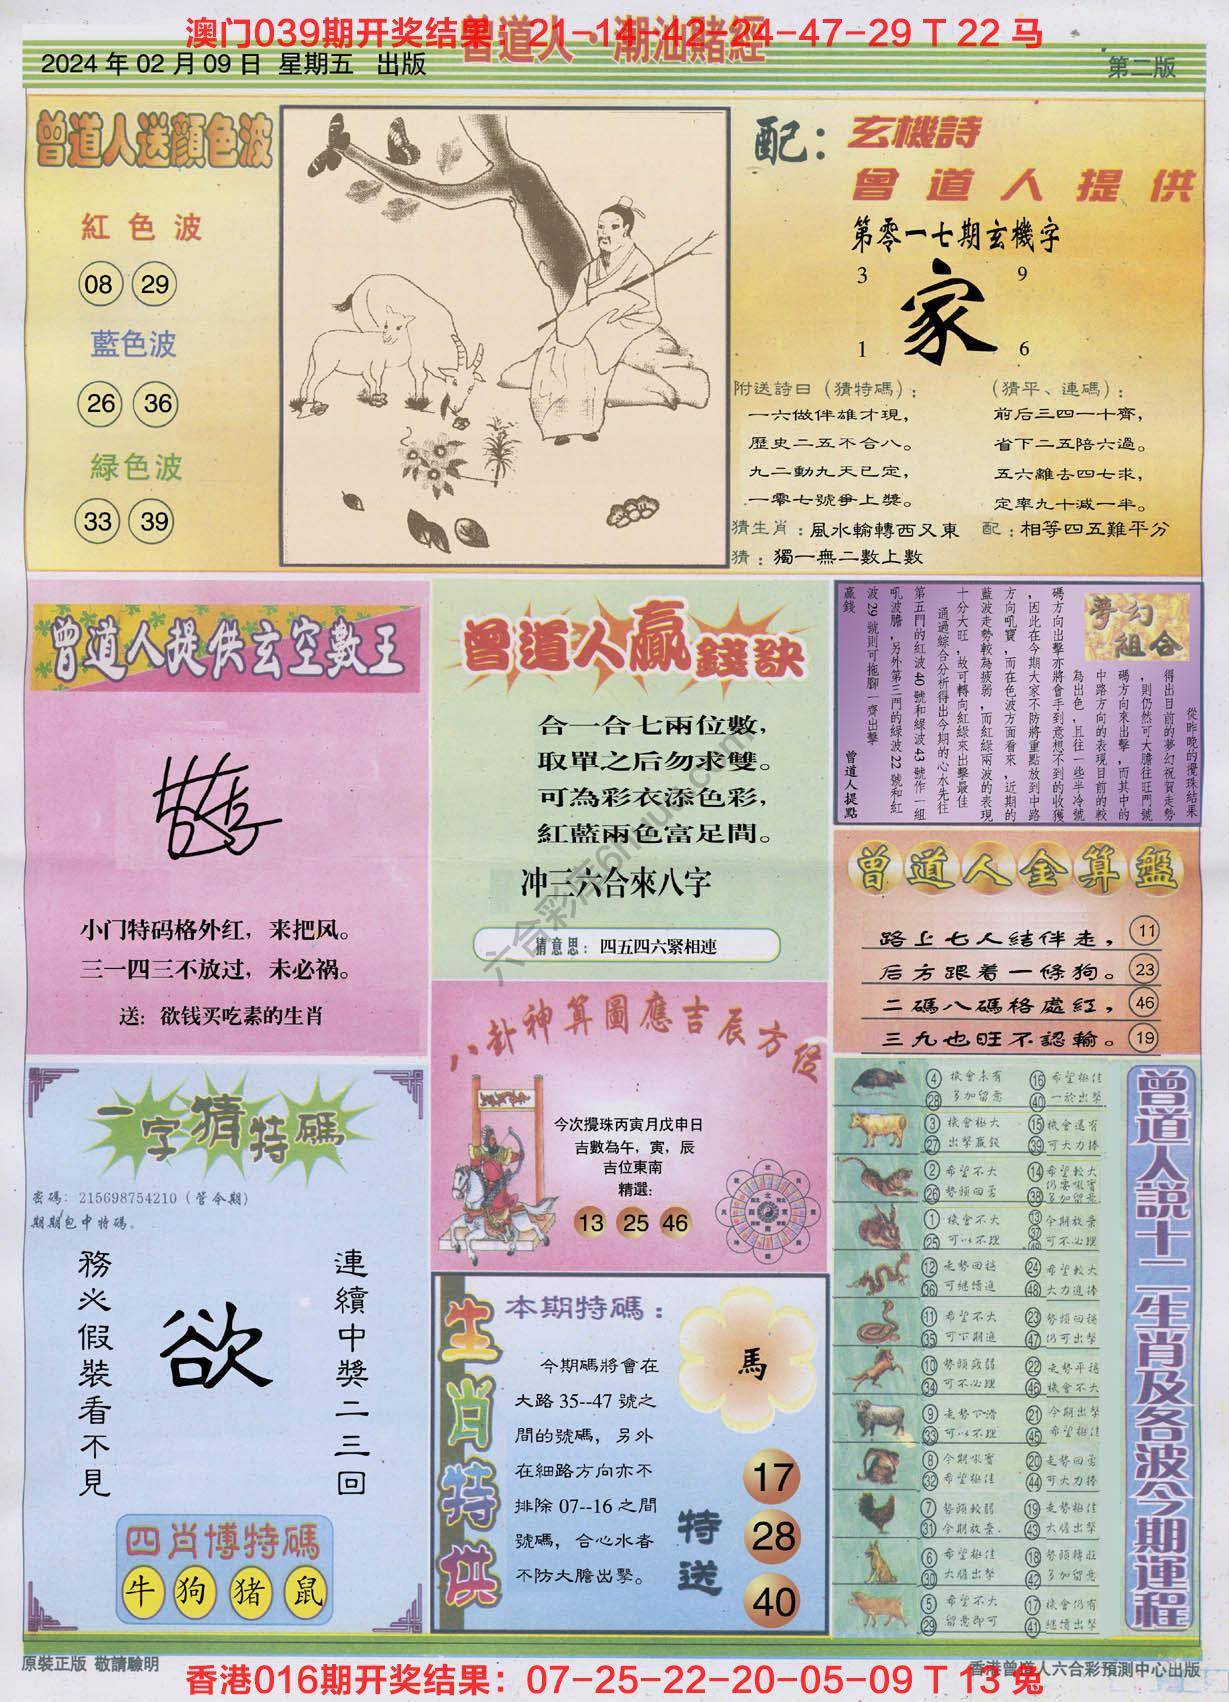 澳门039期开奖结果:21-14-42-24-47-29 T 22 马
曾道人·潮汕賭經
2024 年 02 月 09 日 星期五 出版
第二版
曾道人送顏色波
紅色波
08 29
藍色波
26 36
緑色波
33 39
配:玄機詩
曾道人提供
第零一七期玄機字
3 9
家
1 6
附送詩曰(猜特碼):
一六做伴雄才現,
歷史二五不合八。
九二動九天已定,
一零七號爭上獎。
(猜平、連碼):
前后三四一十齊,
省下二五陪六過。
五六離去四七求,
定率九十減一半。
猜生肖:風水輪轉西又東
配:相等四五難平分
猜:獨一無二數上數
曾道人提供玄空數王
小门特码格外红,来把风。
三一四三不放过,未必祸。
送:欲钱买吃素的生肖
曾道人贏錢訣
合一合七兩位數,
取單之后勿求雙。
可為彩衣添色彩,
紅藍兩色富足間。
冲三六合來八字
猜意思:四五四六緊相連
夢幻組合
從昨晚的攪珠結果
得出目前的夢幻祝賀走勢
,則仍然可大膽往旺門號
碼方向來出擊,而其中的
中路方向的表現目前的較
為出色,且往一些半冷號
碼方向出擊亦將會手到意想不到的收獲
,因此在今期大家不防將重點放到中路
方向吼寶,而在色波方面看來,近期的
藍波走勢較為疲弱,而紅綠兩波的表現
十分大旺,故可轉向紅綠來出擊最佳
通過綜合分析得出今期的心水先往
第五門的紅波 40 號和緑波 43 號作一組
吼波膽,另外第三門的綠波 22 號和紅
波 29 號則可拖腳一齊出擊
贏錢
曾道人提點
曾道人金算盤
路上七人結伴走, 11
后方跟着一條狗。 23
二碼八碼格處紅, 46
三九也旺不認輸。 19
八卦神算圖應吉辰方位
今次攪珠丙寅月戊申日
吉數為午,寅,辰
吉位東南
精選:
13 25 46
一字猜特碼
密碼: 215698754210 (管今期)
期期包中特碼。
連續中獎二三回
欲
務必假裝看不見
四肖博特碼
牛 狗 猪 鼠
生肖特供
本期特碼:
馬
今期碼將會在
大路 35--47 號之
間的號碼,另外
在細路方向亦不
排除 07--16 之間
號碼,合心水者
不防大膽出擊。
特送
17
28
40
曾道人説十二生肖及各波今期運程
4 機會未有 16 希望極佳
28 多加留意 40 一於出擊
3 機會極大 15 機會還有
27 出擊贏錢 39 可大力捧
2 希望不大 14 希望較大
26 勢頭回勇 38 多加留意
1 機會不大 13 今期放棄
25 可以不理 37 可不必理
12 走勢回穩 24 希望較大
36 可繼續追 48 大力追捧
11 希望不大 23 勢頭回穩
35 可下期追 47 仍可出擊
10 勢頭疲弱 22 走勢平穩
34 可不必理 46 機會不大
9 走勢下滑 21 今期出擊
33 可以不理 45 希望極佳
8 今期吼寶 20 走勢回勇
32 希望極佳 44 可大力捧
7 勢頭較弱 19 走勢極佳
31 今期放棄. 43 大膽出擊
6 希望極佳 18 勢頭轉旺
30 大膽出擊 42 多加留意
5 希望不大 17 機會仍有
29 留意即可 41 繼續出擊
原裝正版 敬請驗明
香港曾道人六合彩預測中心出版
香港016期开奖结果:07-25-22-20-05-09 T 13 兔